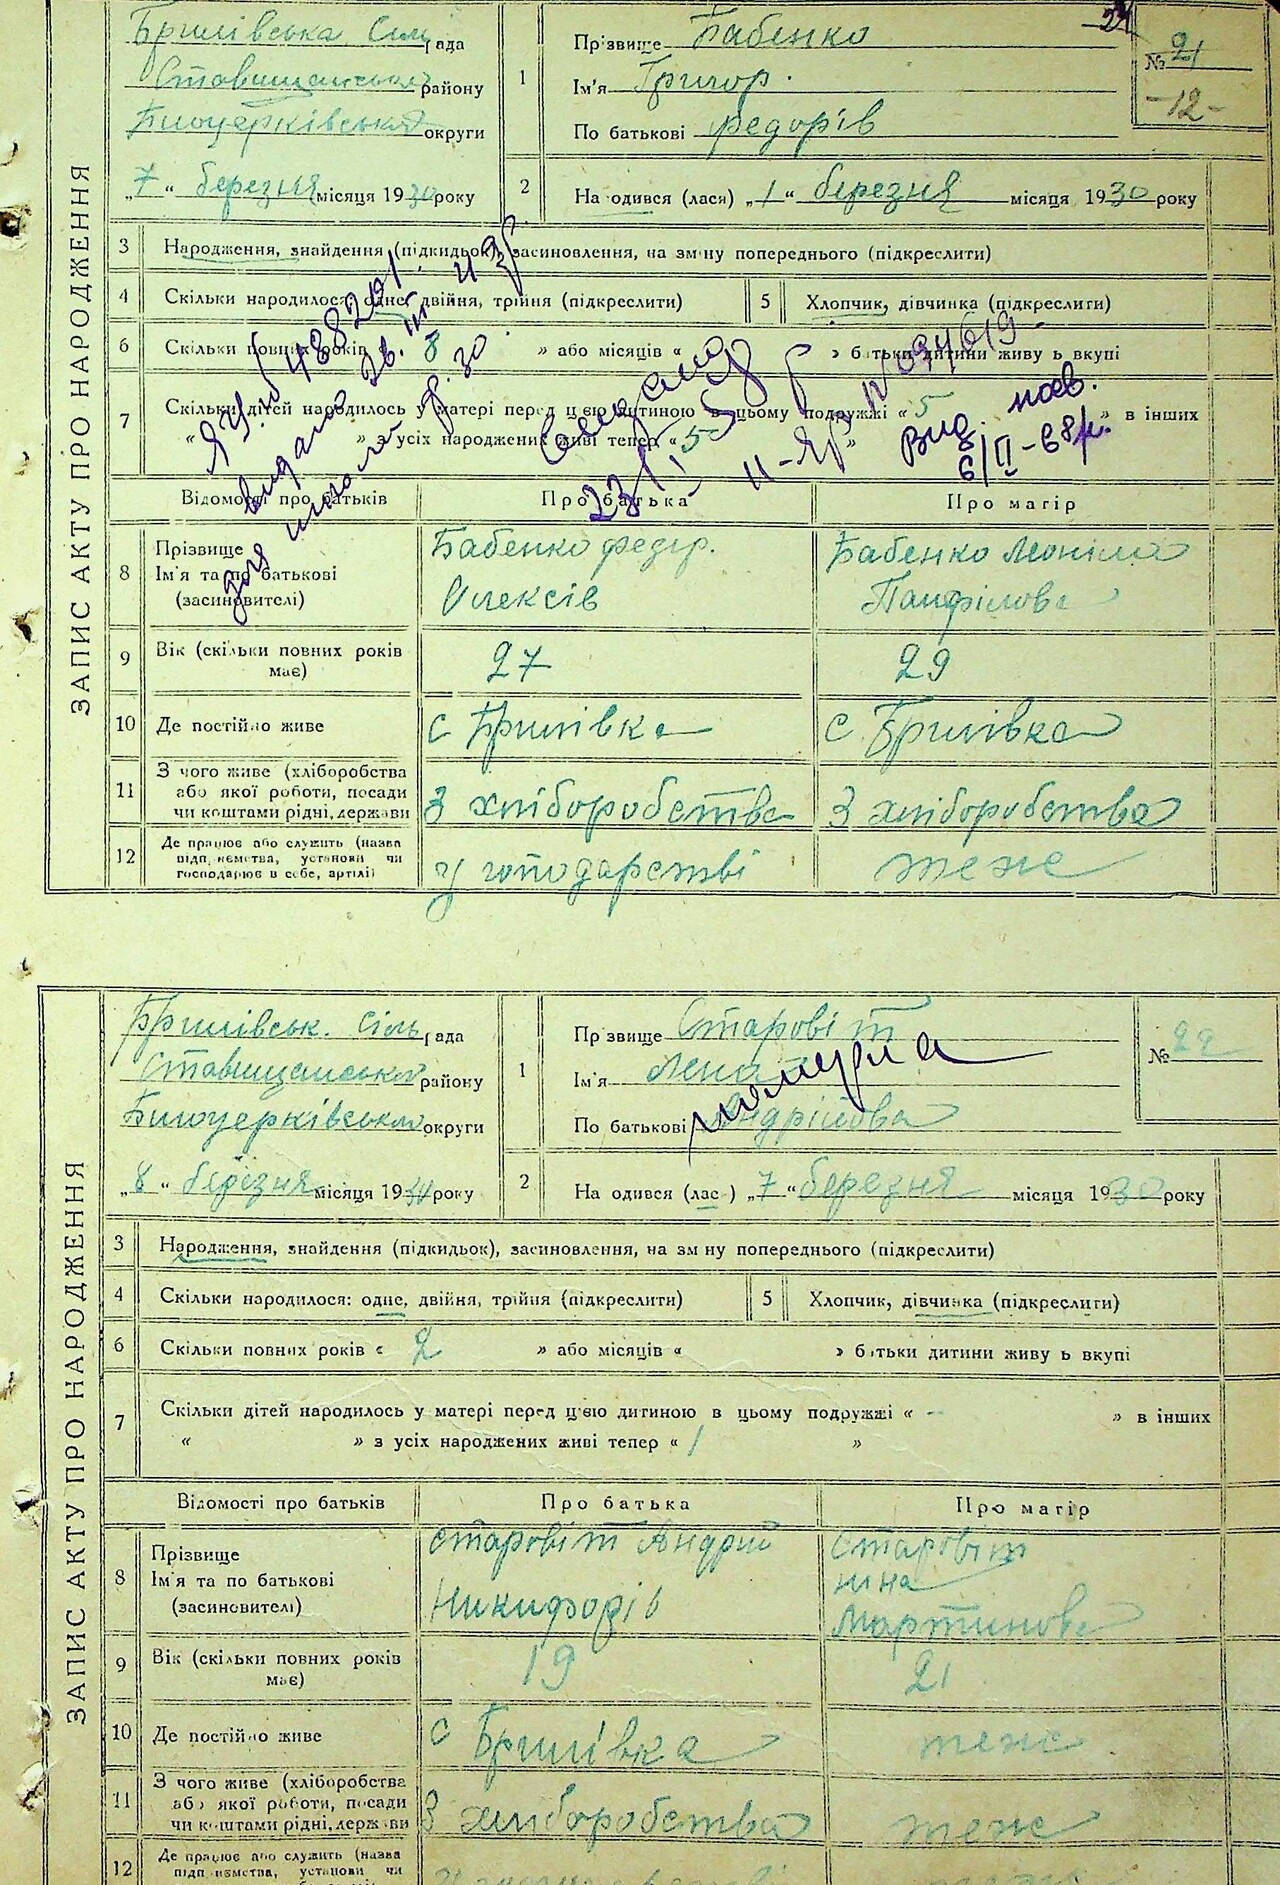 ЗАПИС АКТУ ПРО НАРОДЖЕННЯ
Брилівська Сіль рада
Ставищанськ району
Білоцерківська округи
„7“ березня місяця 1930 року
1 Прізвище Бабенко
Ім'я Григор.
По батькові Федорів
№ 21
-12-
2 На одився (лася) „1“ березня місяця 1930 року
3 Народження, знайдення (підкидьок), засиновлення, на зміну попереднього (підкреслити)
4 Скільки народилося: одне, двійня, трійня (підкреслити)
5 Хлопчик, дівчинка (підкреслити)
6 Скільки повних років « 8 » або місяців « » батьки дитини живу ь вкупі
7 Скільки дітей народилось у матері перед цією дитиною в цьому подружжі « 5 » в інших
« » з усіх народжених живі тепер « 5 »
23/I 58 р
II-ЯР № 094619
Вид. пов.
6/II-68р.
Відомості про батьків Про батька Про матір
8 Прізвище Ім'я та по батькові (засиновителі)
Бабенко Федір. Олексів
Бабенко Леоніла Панфілова
9 Вік (скільки повних років має) 27 29
10 Де постійно живе с Брилівка с Брилівка
11 З чого живе (хліборобства або якої роботи, посади чи коштами рідні, держави
З хліборобства З хліборобства
12 Де працює або служить (назва підп,иємства, установи чи господарює в себе, артілі)
у господарстві теж
ЗАПИС АКТУ ПРО НАРОДЖЕННЯ
Брилівськ. Сіль рада
Ставищанської району
Білоцерківської округи
„8“ березня місяця 1930 року
1 Прізвище Старовіт
Ім'я Лена
По батькові Андрійова
померла
№ 22
2 На одився (лас ) „7“ березня місяця 1930 року
3 Народження, знайдення (підкидьок), засиновлення, на зм ну попереднього (підкреслити)
4 Скільки народилося: одне, двійня, трійня (підкреслити)
5 Хлопчик, дівчинка (підкреслити)
6 Скільки повних років « 2 » або місяців « » батьки дитини живу ь вкупі
7 Скільки дітей народилось у матері перед цією дитиною в цьому подружжі « - » в інших
« » з усіх народжених живі тепер « 1 »
Відомості про батьків Про батька Про матір
8 Прізвище Ім'я та по батькові (засиновителі)
Старовіт Андрій Никифорів
Старовіт Ніна Мартинова
9 Вік (скільки повних років має) 19 21
10 Де постійно живе с Брилівка теж
11 З чого живе (хліборобства або якої роботи, посади чи коштами рідні, держави
З хліборобства теж
12 Де працює або служить (назва підп иємства, установи чи